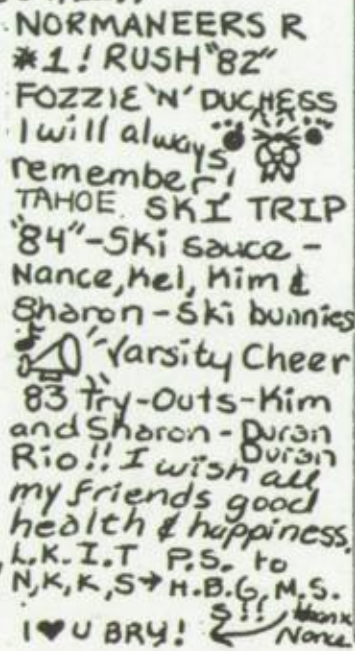 NORMANEERS R
#1! RUSH "82"
FOZZIE 'N' DUCHESS
I will always
remember!
TAHOE SKI TRIP
"84"-Ski sauce-
Nance, Kel, Kim &
Sharon-Ski bunnies
Varsity Cheer
83 Try-Outs-Kim
and Sharon-Duran
Duran
Rio!! I wish all
my friends good
health & happiness.
L.K.I.T P.S. to
N,K,K,S→H.B.G.M.S.
S!! thanx
I ♥ U BRY! Nance